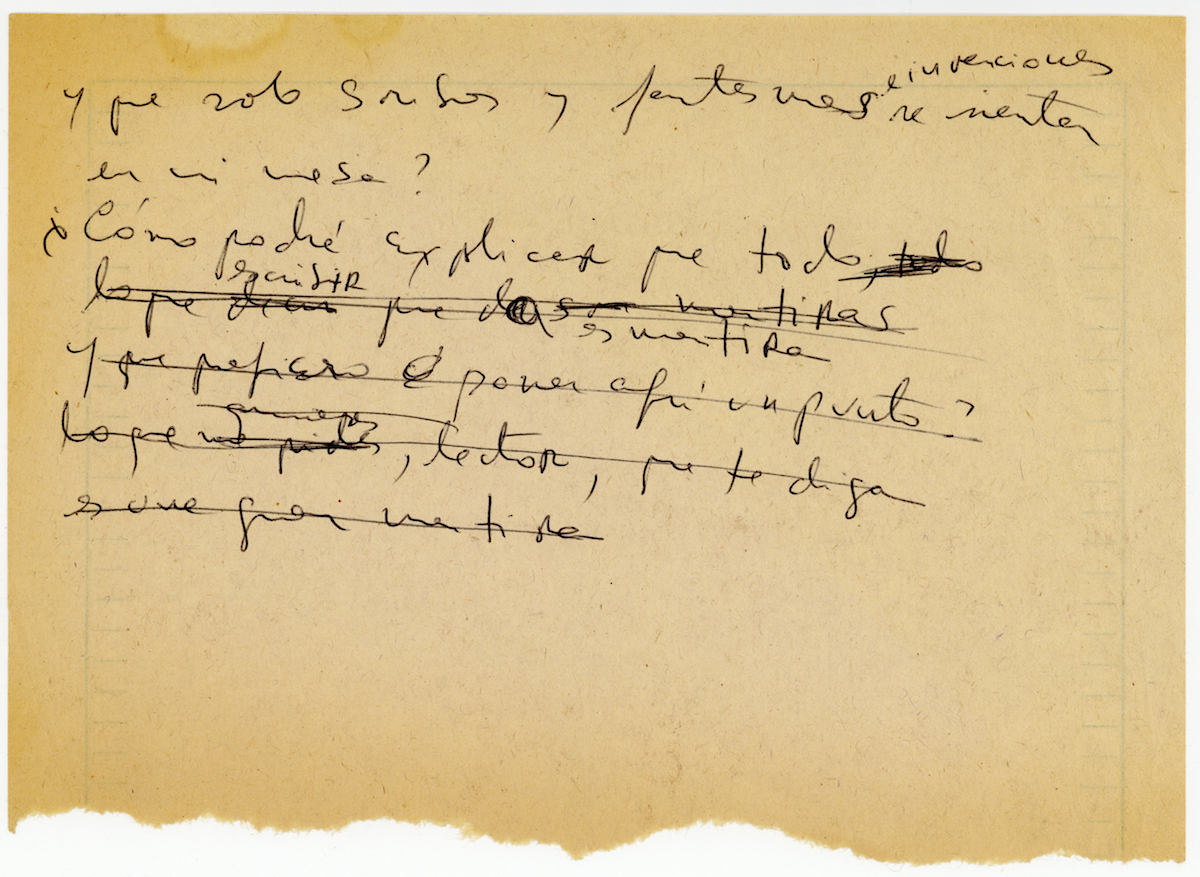 y que solo sombras y fantasmas e invenciones se sientan
en mi mesa?
¿Cómo podré explicar que todo, todo
lo que escribir que mentiras
es mentira
Y que prefiero poner aquí un punto?
lo que me pides, lector, que te diga
es una gran mentira